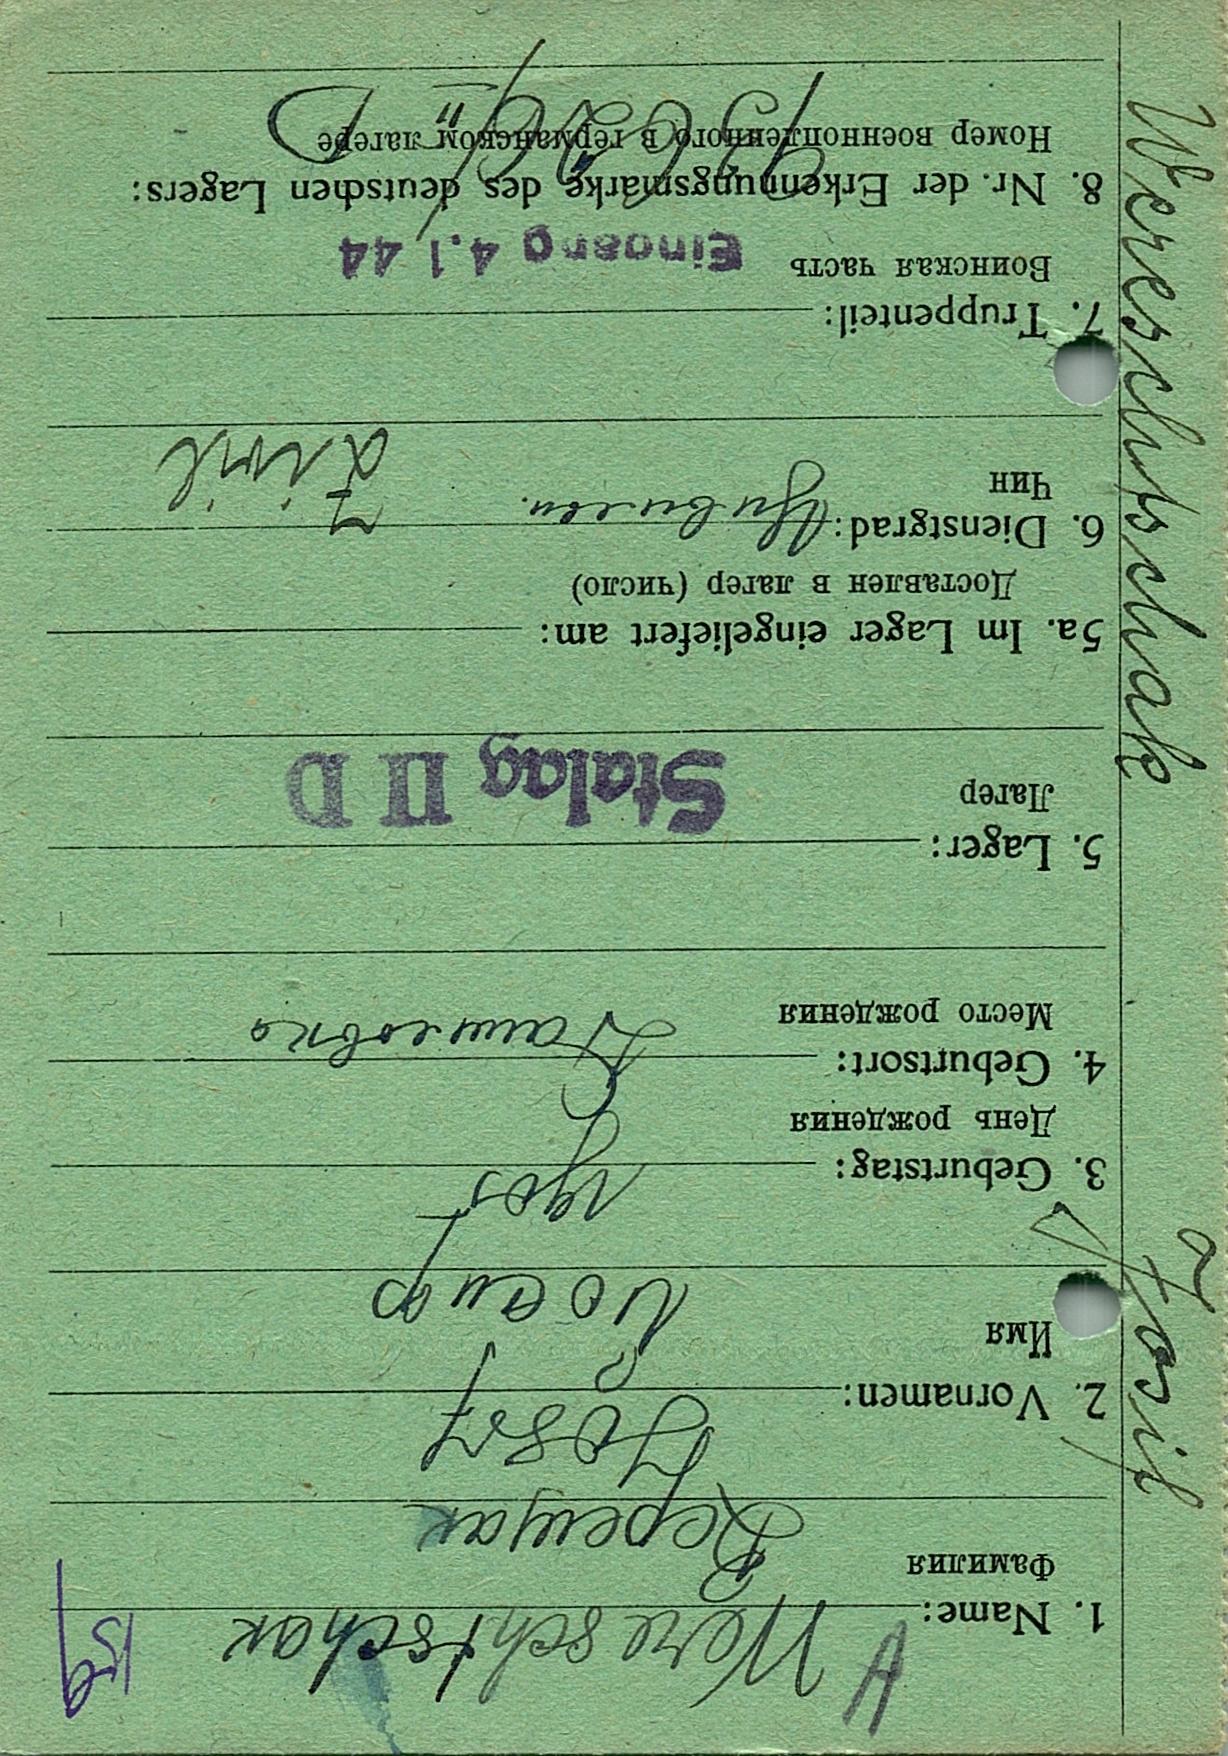 A Wereschtschak
1. Name:
Фамилия
Верещак
Josif
2. Vornamen:
Имя
Иосиф
1905
3. Geburtstag:
День рождения
4. Geburtsort:
Место рождения
5. Lager:
Лагер
Stalag II D
5a. Im Lager eingeliefert am:
Доставлен в лагер (число)
6. Dienstgrad:
Чин
Zivil
7. Truppenteil:
Воинская часть
Eingang 4. 1. 44
8. Nr. der Erkennungsmarke des deutschen Lagers:
Номер военнопленного в германском лагере
II D
Wereschtschak
Josif